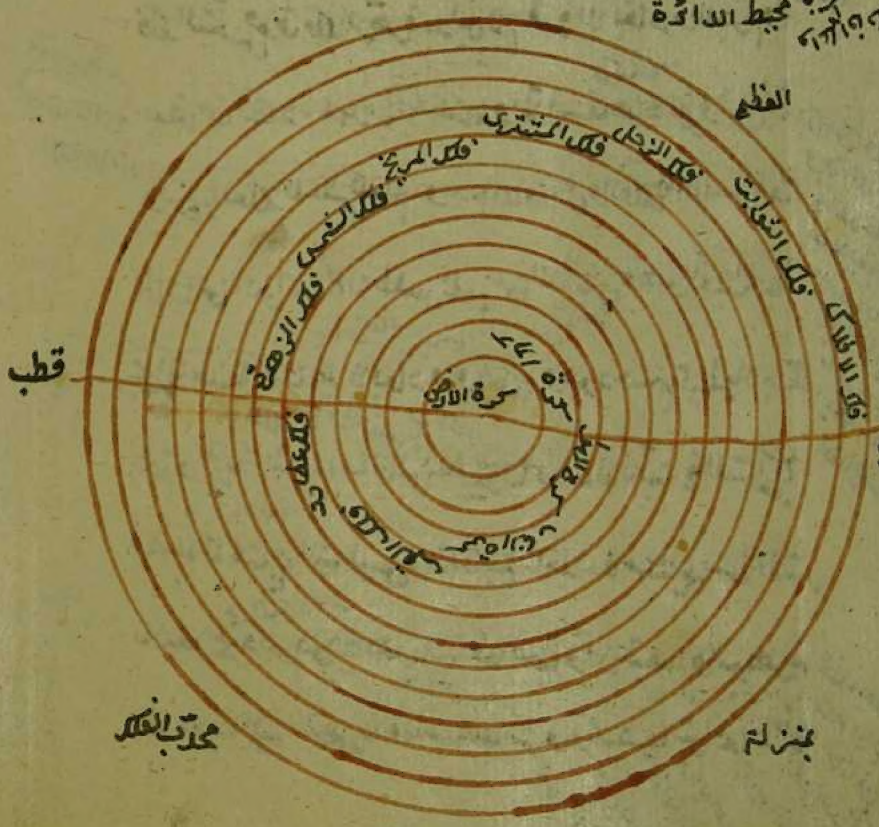 محيط الدائرة
العظمى
فلك الافلاك
فلك الثوابت
فلك الزحل
فلك المشترى
فلك المريخ
فلك الشمس
فلك الزهرة
فلك عطارد
فلك القمر
كرة النار
كرة الهواء
كرة الماء
كرة الارض
قطب
محدّب الفلك
بمنزلة